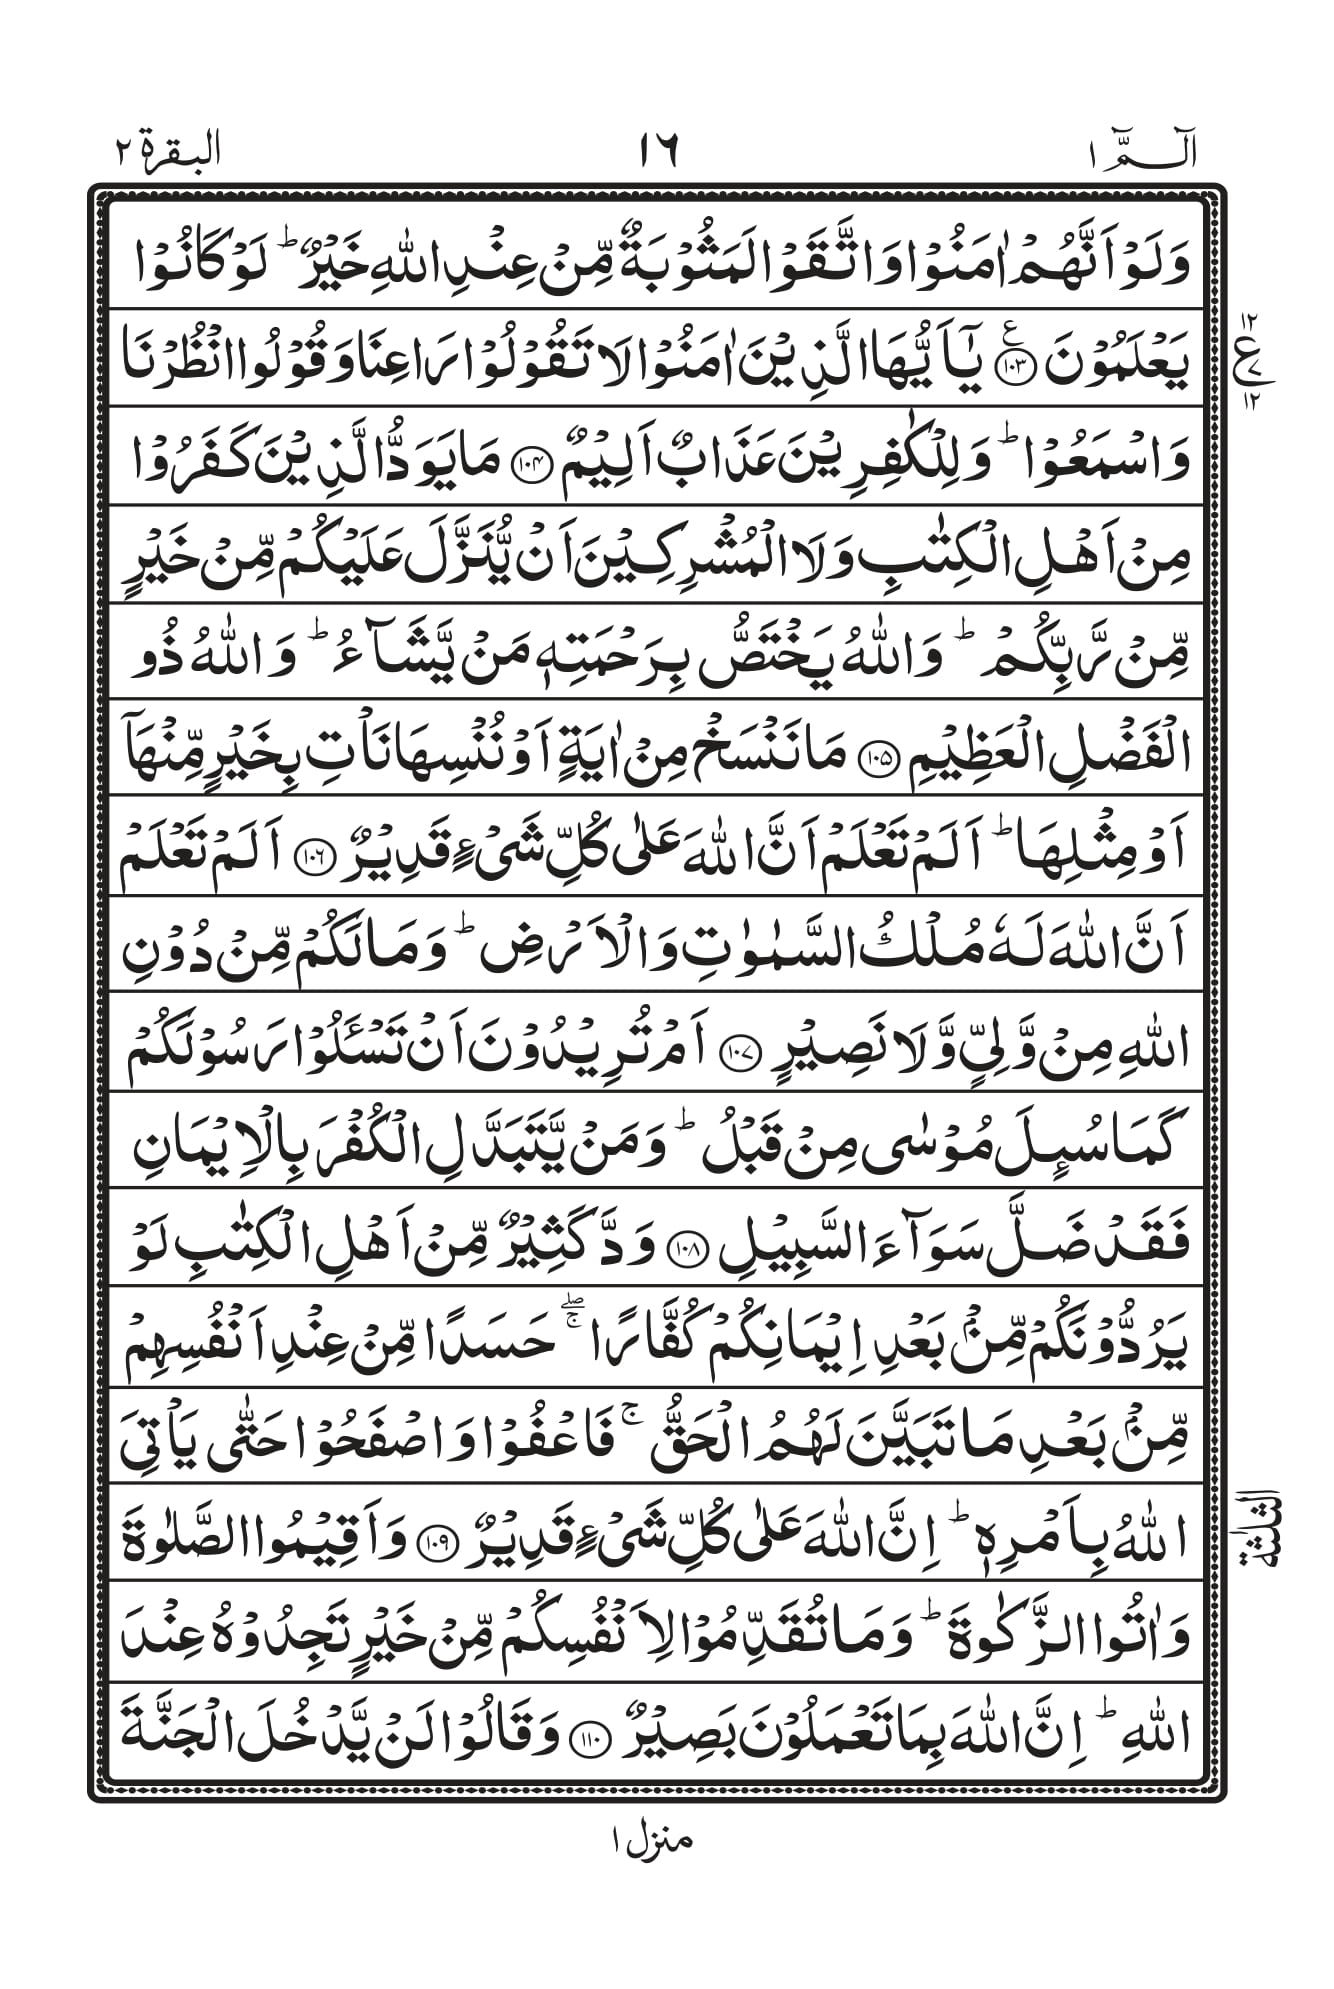 الٓـمّٓ ١
١٦
البقرة ٢
وَلَوْ اَنَّهُمْ اٰمَنُوْا وَاتَّقَوْا لَمَثُوْبَةٌ مِّنْ عِنْدِ اللّٰهِ خَيْرٌ ؕ لَوْ كَانُوْا
يَعْلَمُوْنَ ﴿۱۰۳﴾ ع يٰۤاَيُّهَا الَّذِيْنَ اٰمَنُوْا لَا تَقُوْلُوْا رَاعِنَا وَقُوْلُوا انْظُرْنَا
١٢
ع
٧
١٢
وَاسْمَعُوْا ؕ وَلِلْكٰفِرِيْنَ عَذَابٌ اَلِيْمٌ ﴿۱۰۴﴾ مَا يَوَدُّ الَّذِيْنَ كَفَرُوْا
مِنْ اَهْلِ الْكِتٰبِ وَلَا الْمُشْرِكِيْنَ اَنْ يُّنَزَّلَ عَلَيْكُمْ مِّنْ خَيْرٍ
مِّنْ رَّبِّكُمْ ؕ وَاللّٰهُ يَخْتَصُّ بِرَحْمَتِهٖ مَنْ يَّشَآءُ ؕ وَاللّٰهُ ذُو
الْفَضْلِ الْعَظِيْمِ ﴿۱۰۵﴾ مَا نَنْسَخْ مِنْ اٰيَةٍ اَوْ نُنْسِهَا نَاْتِ بِخَيْرٍ مِّنْهَاۤ
اَوْ مِثْلِهَا ؕ اَلَمْ تَعْلَمْ اَنَّ اللّٰهَ عَلٰى كُلِّ شَیْءٍ قَدِيْرٌ ﴿۱۰۶﴾ اَلَمْ تَعْلَمْ
اَنَّ اللّٰهَ لَهٗ مُلْكُ السَّمٰوٰتِ وَالْاَرْضِ ؕ وَمَا لَكُمْ مِّنْ دُوْنِ
اللّٰهِ مِنْ وَّلِیٍّ وَّلَا نَصِيْرٍ ﴿۱۰۷﴾ اَمْ تُرِيْدُوْنَ اَنْ تَسْـَٔلُوْا رَسُوْلَكُمْ
كَمَا سُىِٕلَ مُوْسٰى مِنْ قَبْلُ ؕ وَمَنْ يَّتَبَدَّلِ الْكُفْرَ بِالْاِيْمَانِ
فَقَدْ ضَلَّ سَوَآءَ السَّبِيْلِ ﴿۱۰۸﴾ وَدَّ كَثِيْرٌ مِّنْ اَهْلِ الْكِتٰبِ لَوْ
يَرُدُّوْنَكُمْ مِّنْۢ بَعْدِ اِيْمَانِكُمْ كُفَّارًا ۚۖ حَسَدًا مِّنْ عِنْدِ اَنْفُسِهِمْ
مِّنْۢ بَعْدِ مَا تَبَيَّنَ لَهُمُ الْحَقُّ ۚ فَاعْفُوْا وَاصْفَحُوْا حَتّٰى يَاْتِیَ
اللّٰهُ بِاَمْرِهٖ ؕ اِنَّ اللّٰهَ عَلٰى كُلِّ شَیْءٍ قَدِيْرٌ ﴿۱۰۹﴾ وَاَقِيْمُوا الصَّلٰوةَ
الثلثة
وَاٰتُوا الزَّكٰوةَ ؕ وَمَا تُقَدِّمُوْا لِاَنْفُسِكُمْ مِّنْ خَيْرٍ تَجِدُوْهُ عِنْدَ
اللّٰهِ ؕ اِنَّ اللّٰهَ بِمَا تَعْمَلُوْنَ بَصِيْرٌ ﴿۱۱۰﴾ وَقَالُوْا لَنْ يَّدْخُلَ الْجَنَّةَ
منزل ١